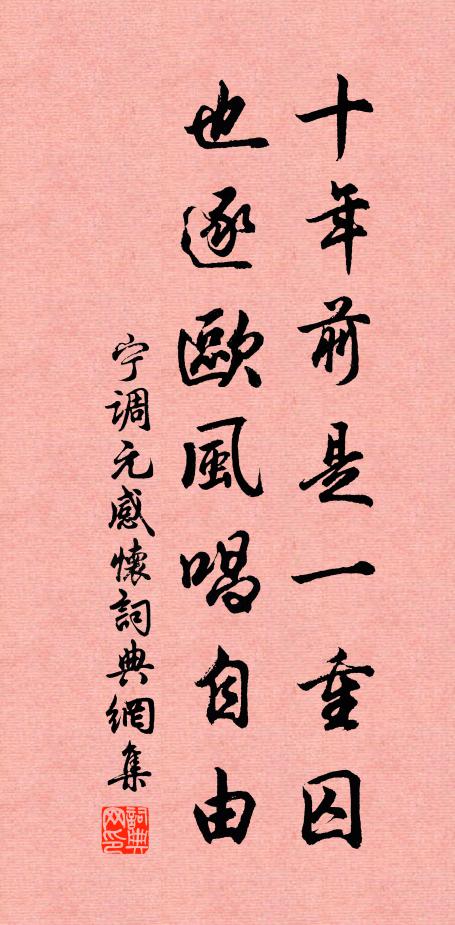 十年前是一重囚
也逐歐風唱自由
宁调元感懷詞典網集
詞典网印